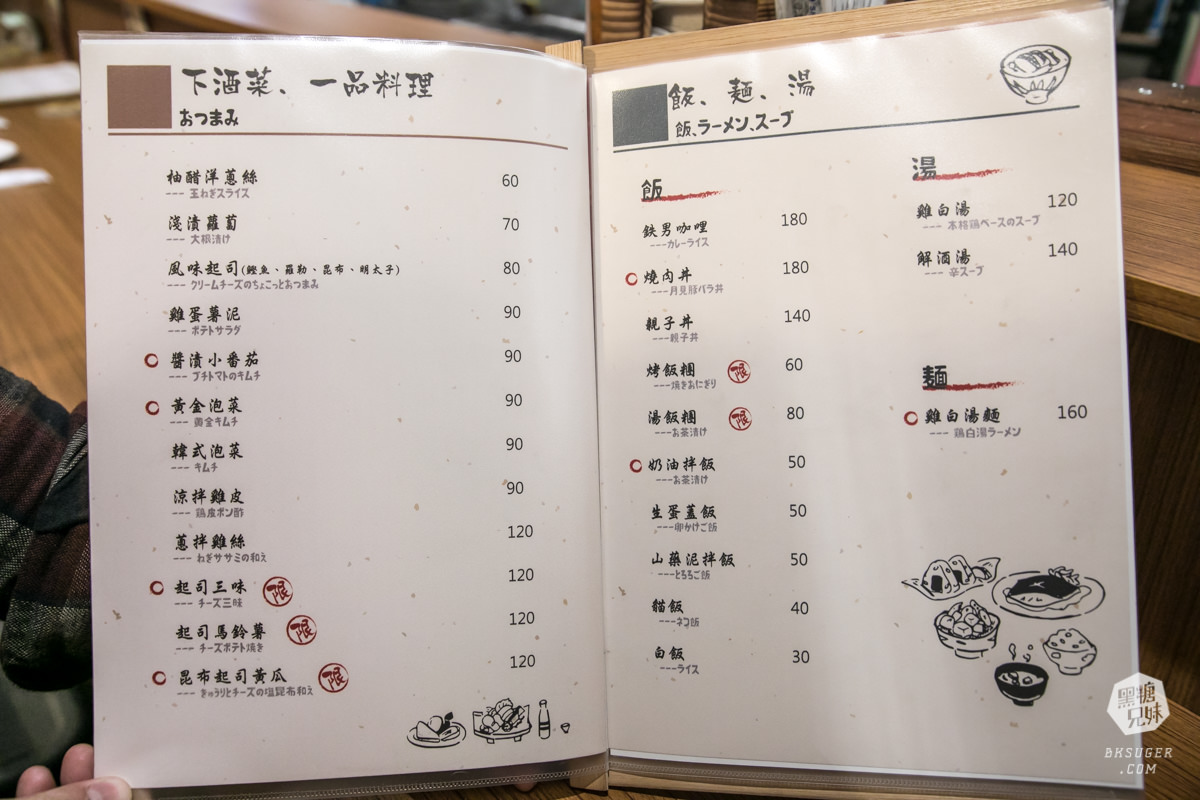 下酒菜、一品料理
おつまみ
柚醋洋蔥絲 60
--- 玉ねぎスライス
淺漬蘿蔔 70
--- 大根漬け
風味起司(鰹魚、羅勒、昆布、明太子) 80
--- クリームチーズのちょこっとおつまみ
雞蛋薯泥 90
--- ポテトサラダ
醬漬小番茄 90
--- プチトマトのキムチ
黃金泡菜 90
--- 黄金キムチ
韓式泡菜 90
--- キムチ
涼拌雞皮 90
--- 鶏皮ポン酢
蔥拌雞絲 120
--- ねぎササミの和え
起司三味 限 120
--- チーズ三味
起司馬鈴薯 限 120
--- チーズポテト焼き
昆布起司黃瓜 限 120
--- きゅうりとチーズの塩昆布和え
飯、麵、湯
飯、ラーメン、スープ
飯
鉄男咖哩 180
---カレーライス
燒肉丼 180
---月見豚バラ丼
親子丼 140
---親子丼
烤飯糰 限 60
---焼きおにぎり
湯飯糰 限 80
---お茶漬け
奶油拌飯 50
---お茶漬け
生蛋蓋飯 50
---卵かけご飯
山藥泥拌飯 50
---とろろご飯
貓飯 40
---ネコ飯
白飯 30
---ライス
湯
雞白湯 120
--- 本格鶏ベースのスープ
解酒湯 140
--- 辛スープ
麵
雞白湯麵 160
--- 鶏白湯ラーメン
黑糖
兄妹
BKSUGER
.COM